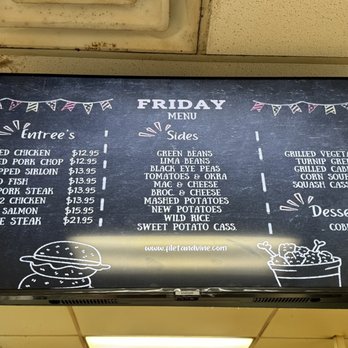 FRIDAY
MENU
Entree's
ED CHICKEN $12.95
ED PORK CHOP $12.95
PPED SIRLOIN $13.95
D FISH $13.95
PORK STEAK $13.95
2 CHICKEN $13.95
SALMON $15.95
E STEAK $21.95
Sides
GREEN BEANS
LIMA BEANS
BLACK EYE PEAS
TOMATOES & OKRA
MAC & CHEESE
BROC. & CHEESE
MASHED POTATOES
NEW POTATOES
WILD RICE
SWEET POTATO CASS.
www.filetandvine.com
GRILLED VEGETA
TURNIP GRE
GRILLED CAB
CORN SOUF
SQUASH CASS
Desse
COB